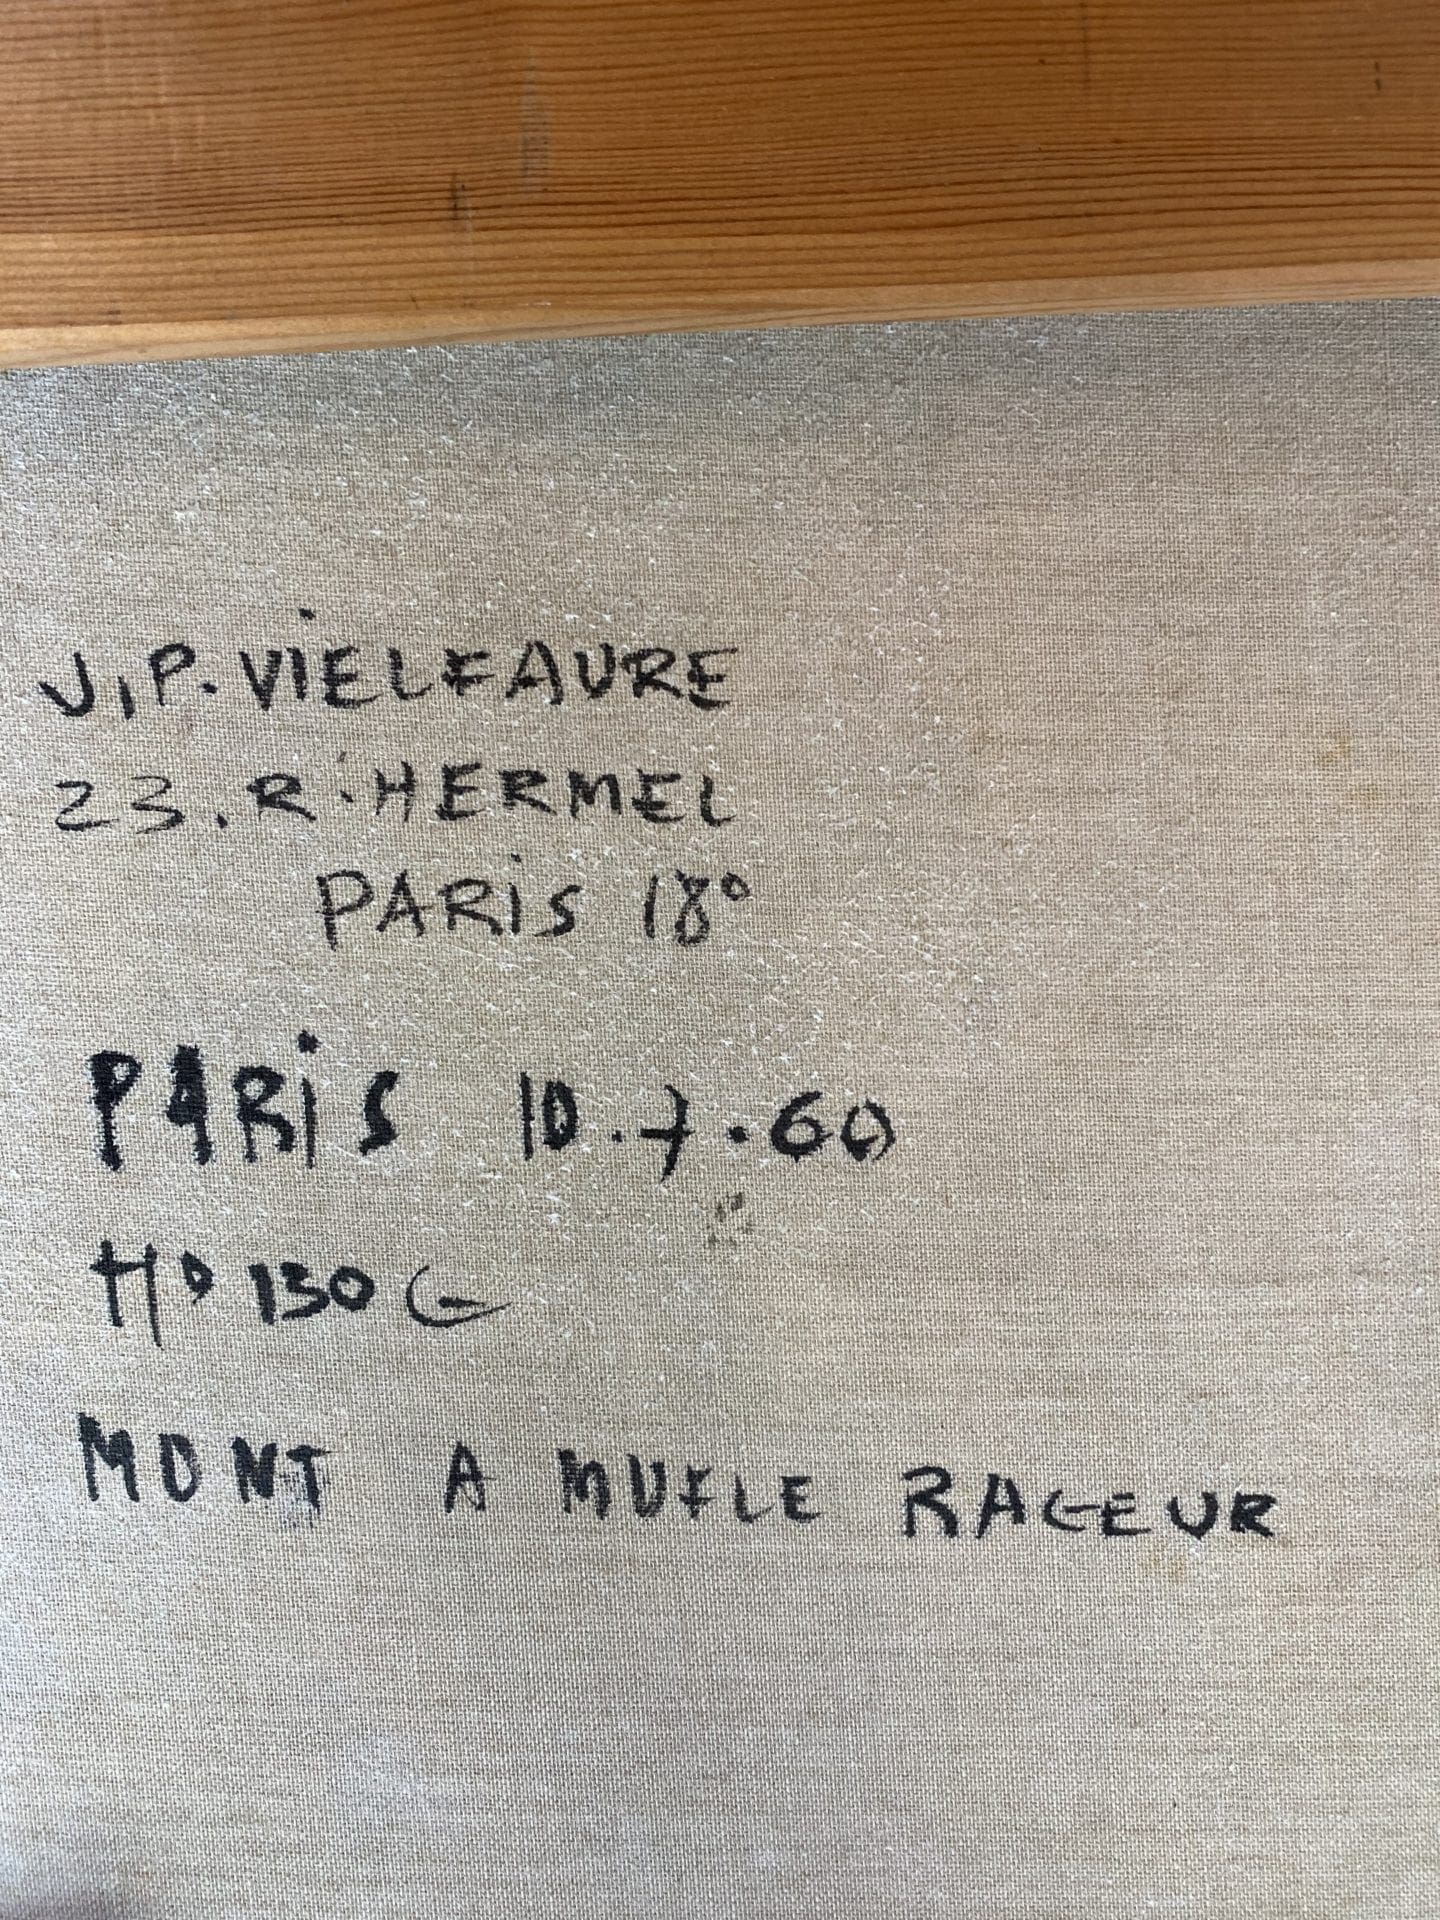 J.P. VIELFAURE
23. R. HERMEL
PARiS 18°
PARiS 10.7.60
N° 130 G
MONT A MUFLE RAGEUR